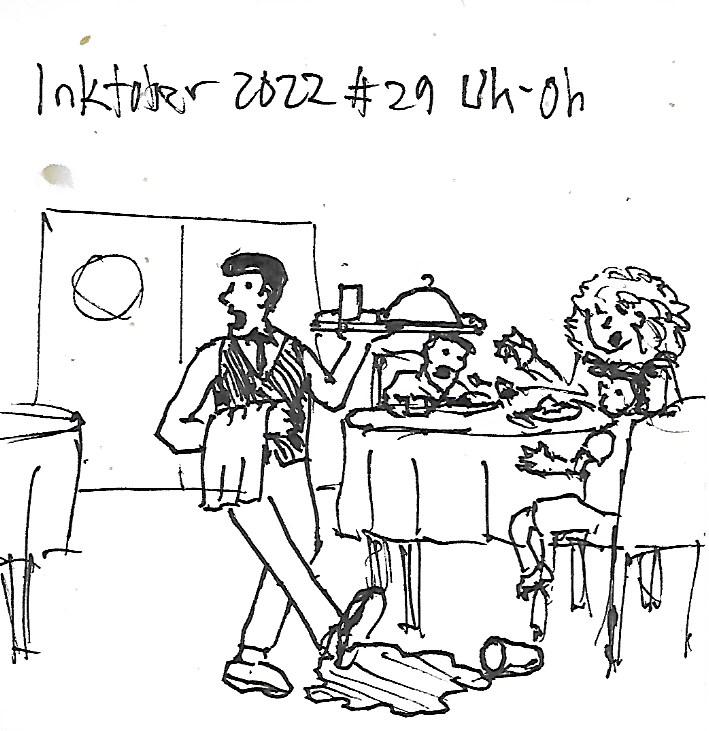 Inktober 2022 #29 Uh-Oh